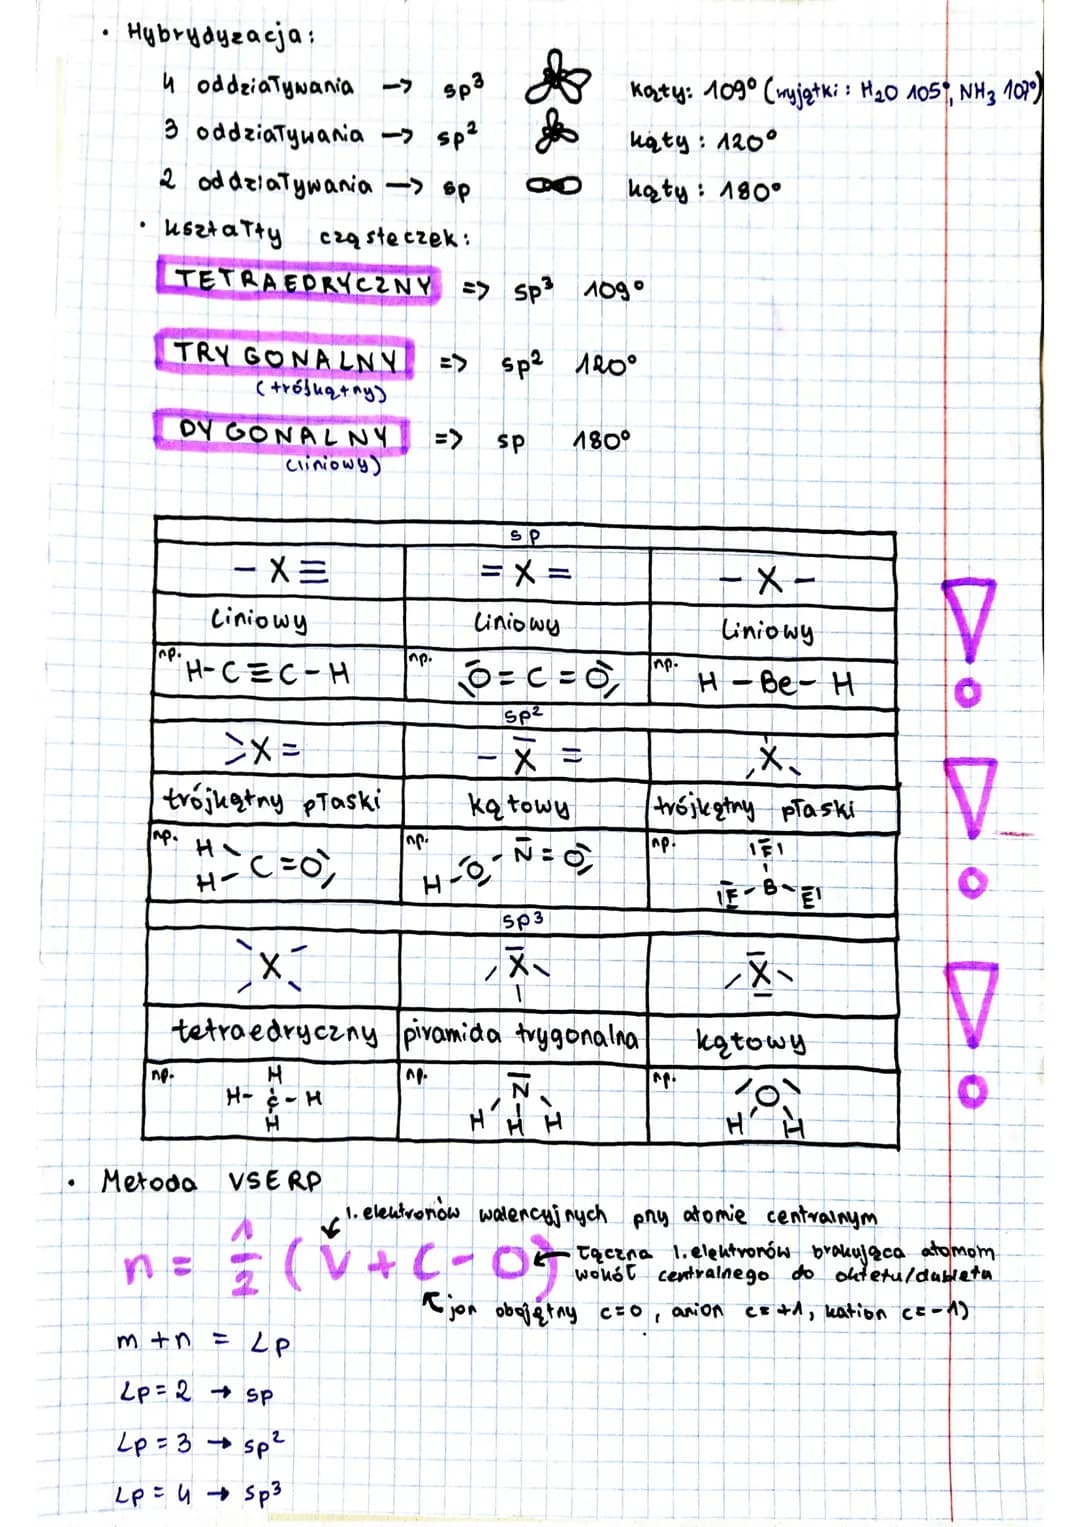 • Hybrydyzacja:
4 oddziaływania -> sp³ kąty: 109° (wyjątki: H₂O 105°, NH₃ 107°)
3 oddziaływania -> sp² kąty: 120°
2 oddziaływania -> sp kąty: 180°
• kształty cząsteczek:
TETRAEDRYCZNY => sp³ 109°
TRYGONALNY => sp² 120°
(trójkątny)
DYGONALNY => sp 180°
(liniowy)
sp
- X ≡ = X = - X -
liniowy liniowy liniowy
np. H-C≡C-H np. O=C=O np. H-Be-H
sp²
>X= - X = X
trójkątny płaski kątowy trójkątny płaski
np. H np. np. |F|
H-C=O H-O-N=O F-B-F
H
sp³
X X X
tetraedryczny piramida trygonalna kątowy
np. H np. N np. O
H-C-H H H H H H
H
• Metoda VSERP
l. elektronów walencyjnych przy atomie centralnym
n = 1/2 (V + C - O) łączna l. elektronów brakująca atomom
wokół centralnego do oktetu/dubletu
jon obojętny c=0, anion c=+1, kation c=-1)
m + n = Lp
Lp = 2 → sp
Lp = 3 → sp²
Lp = 4 → sp³